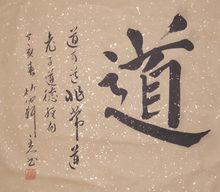 道
道可道非常道
老子道德經句
丁亥春